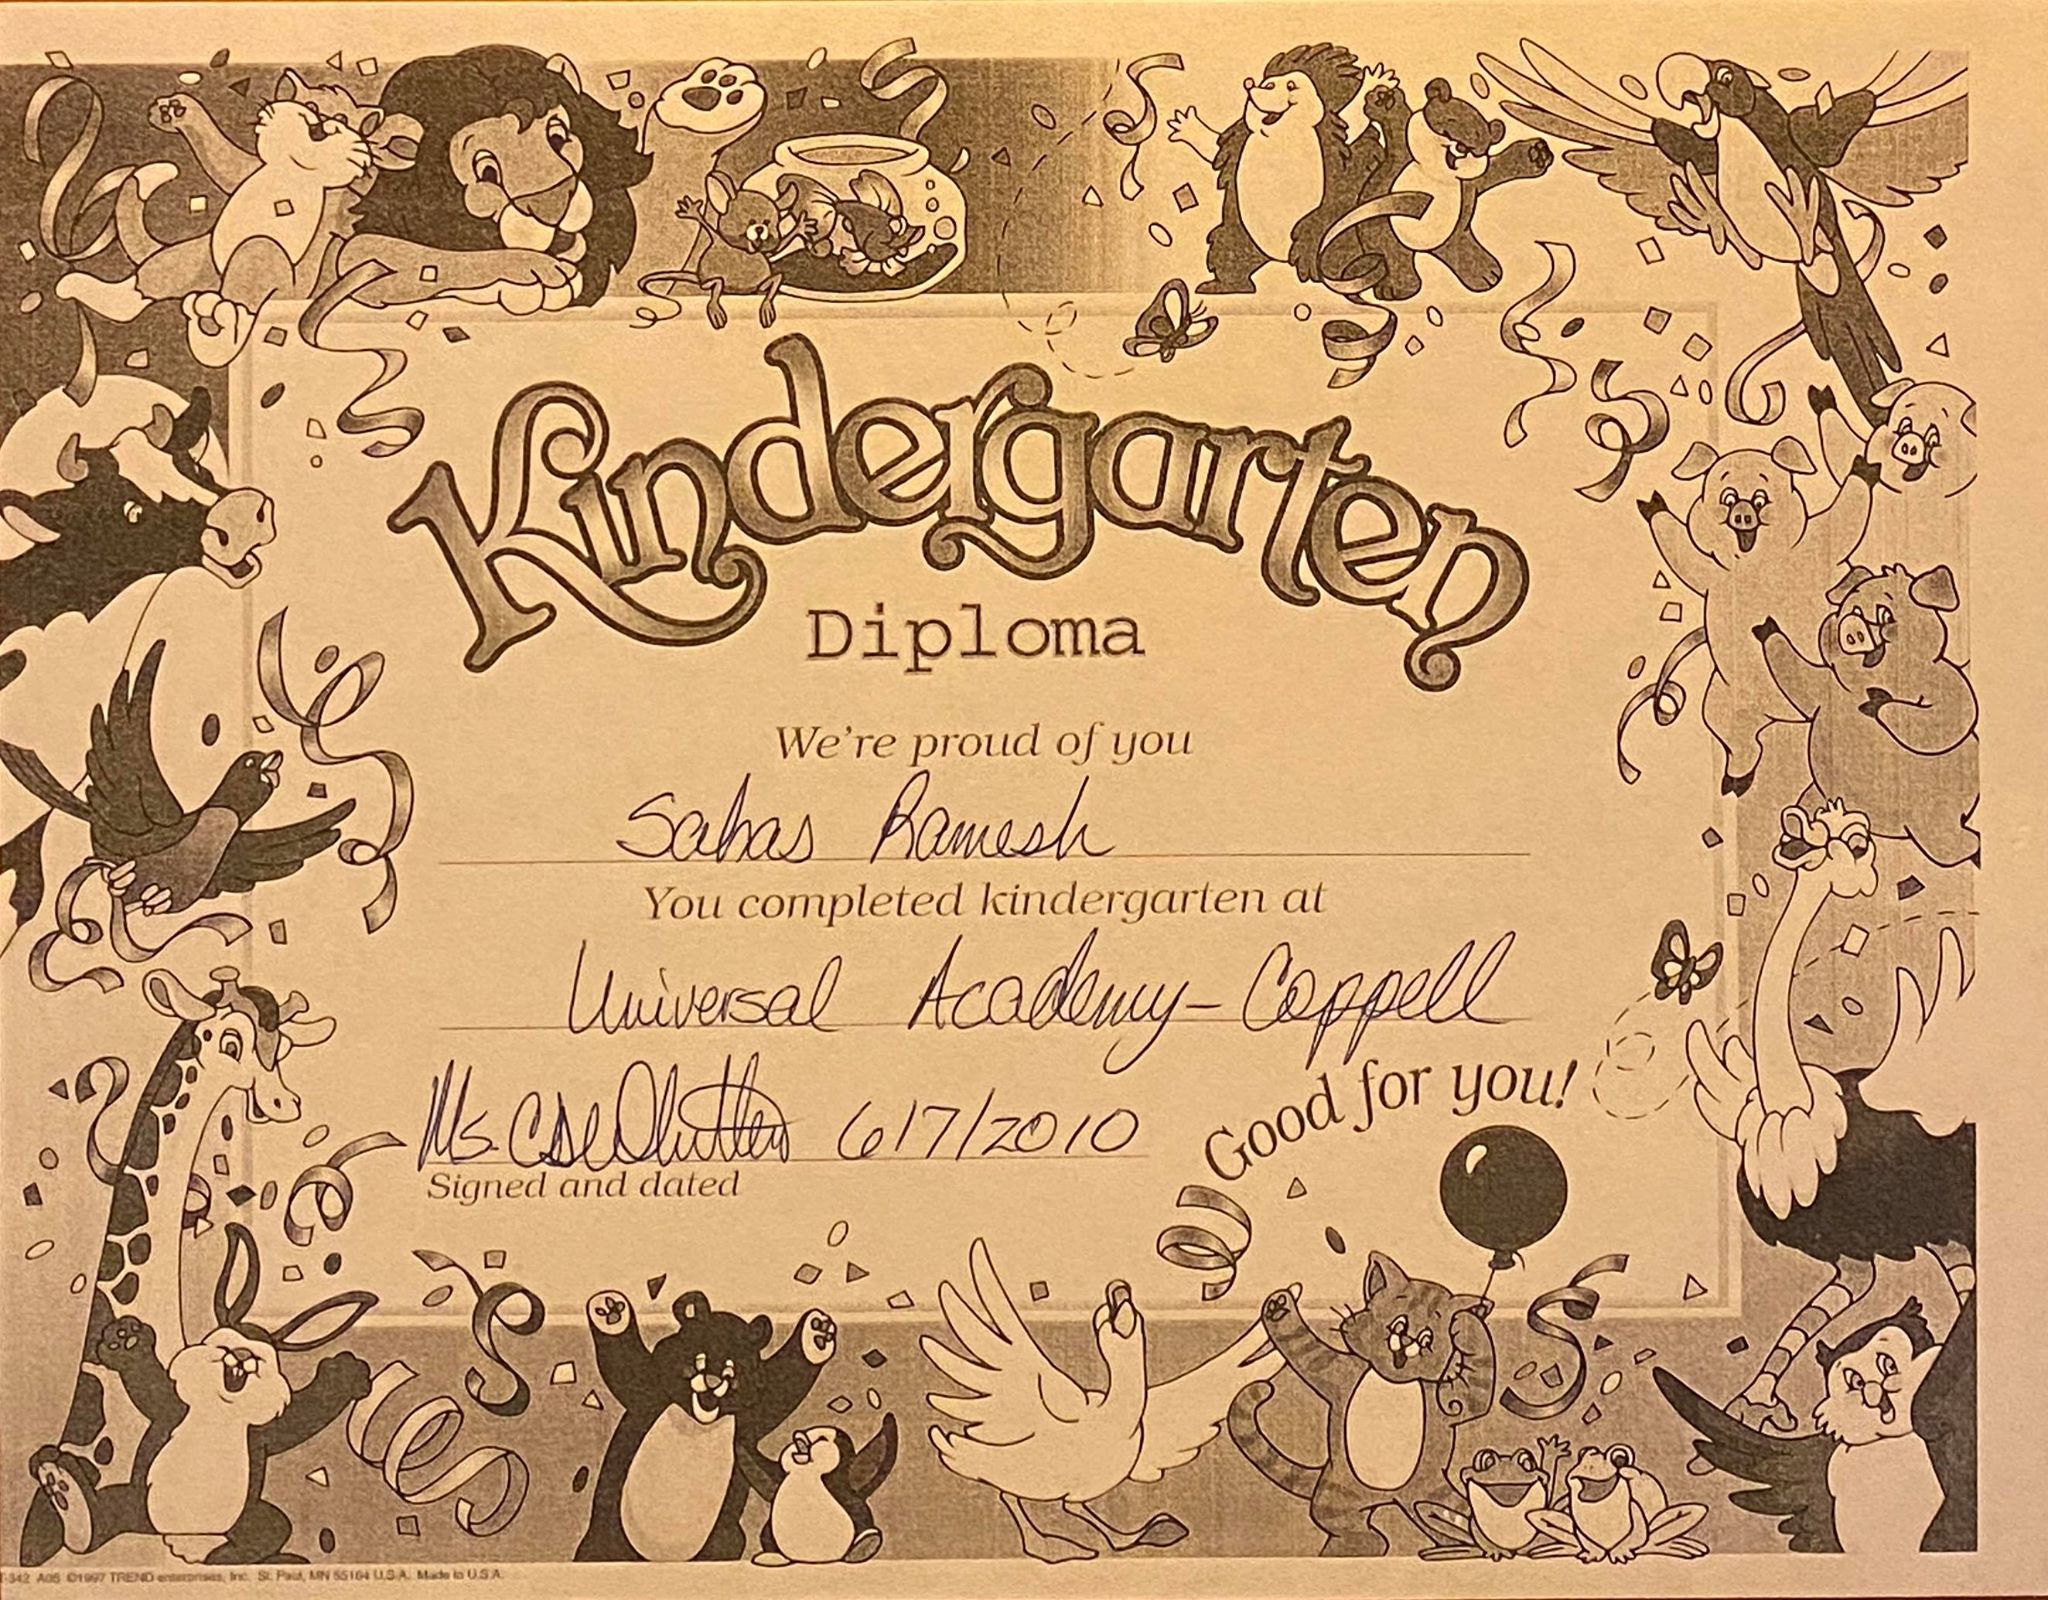 Kindergarten
Diploma
We're proud of you
Sahas Ramesh
You completed kindergarten at
Universal Academy-Coppell
Ms. 6/7/2010
Signed and dated
Good for you!
T-342 A05 ©1997 TREND enterprises, Inc. St. Paul, MN 55164 U.S.A. Made in U.S.A.